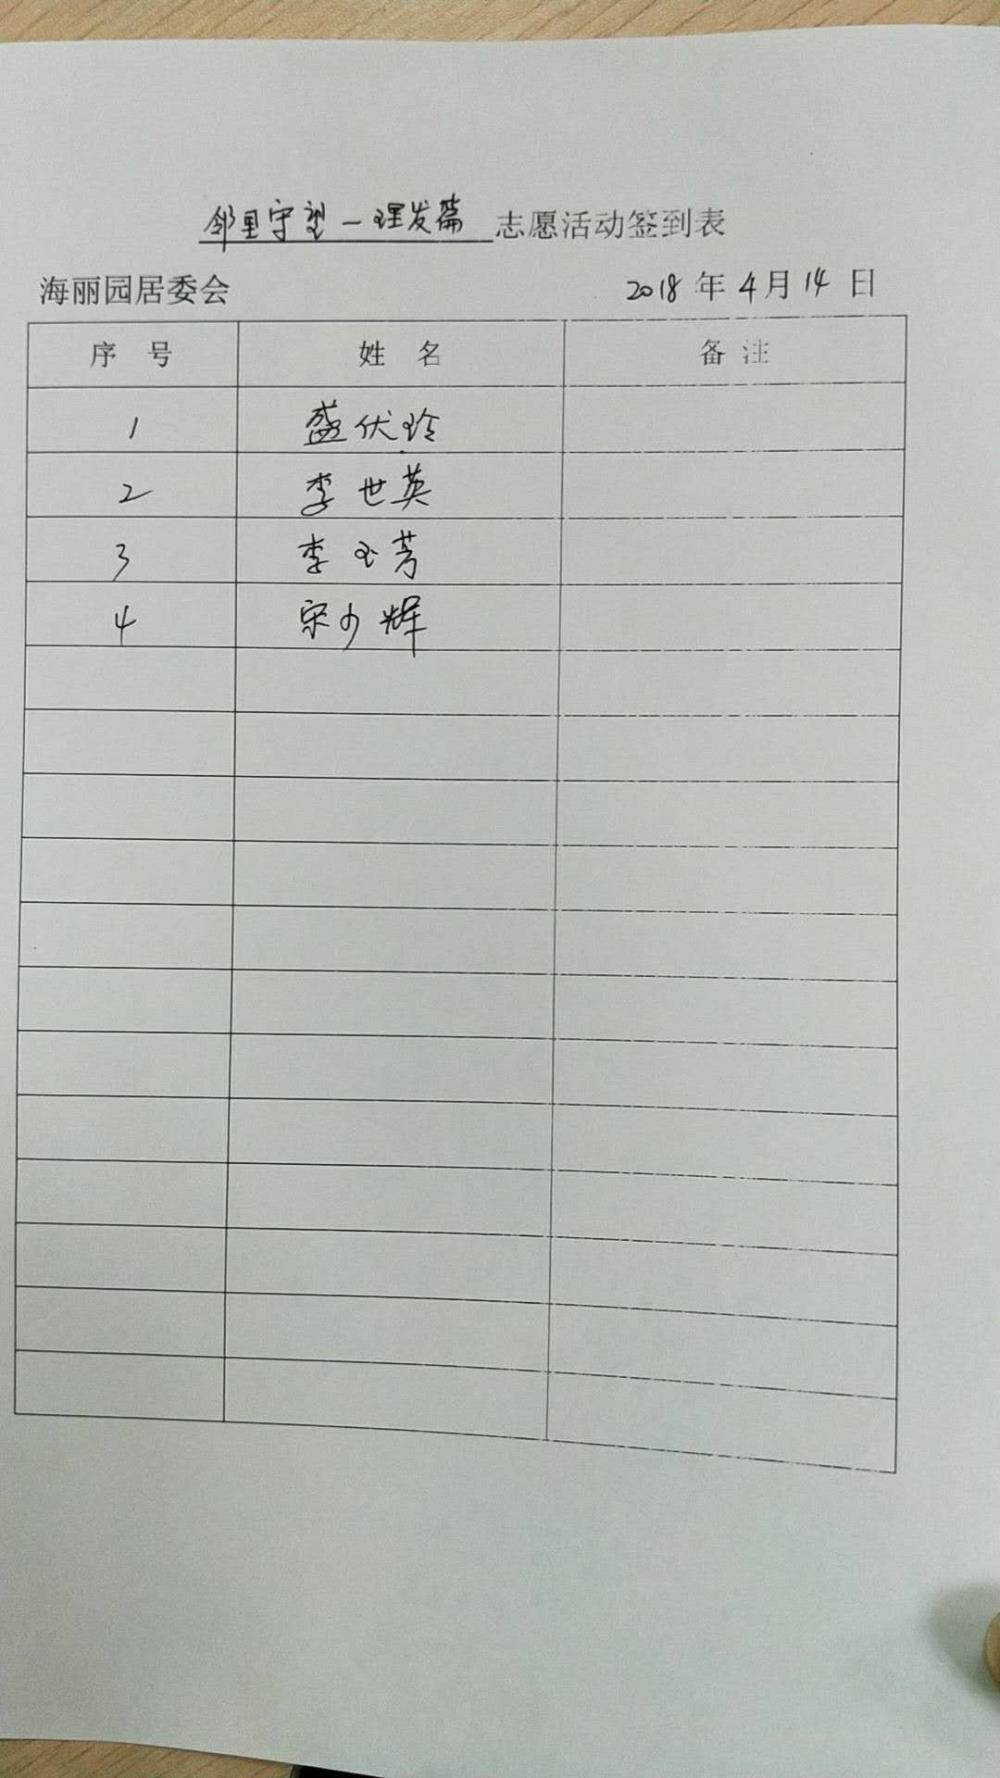 邻里守望—理发篇 志愿活动签到表
海丽园居委会 2018年4月14日
序号 姓名 备注
1 盛伏玲
2 李世英
3 李玉芳
4 宋少辉